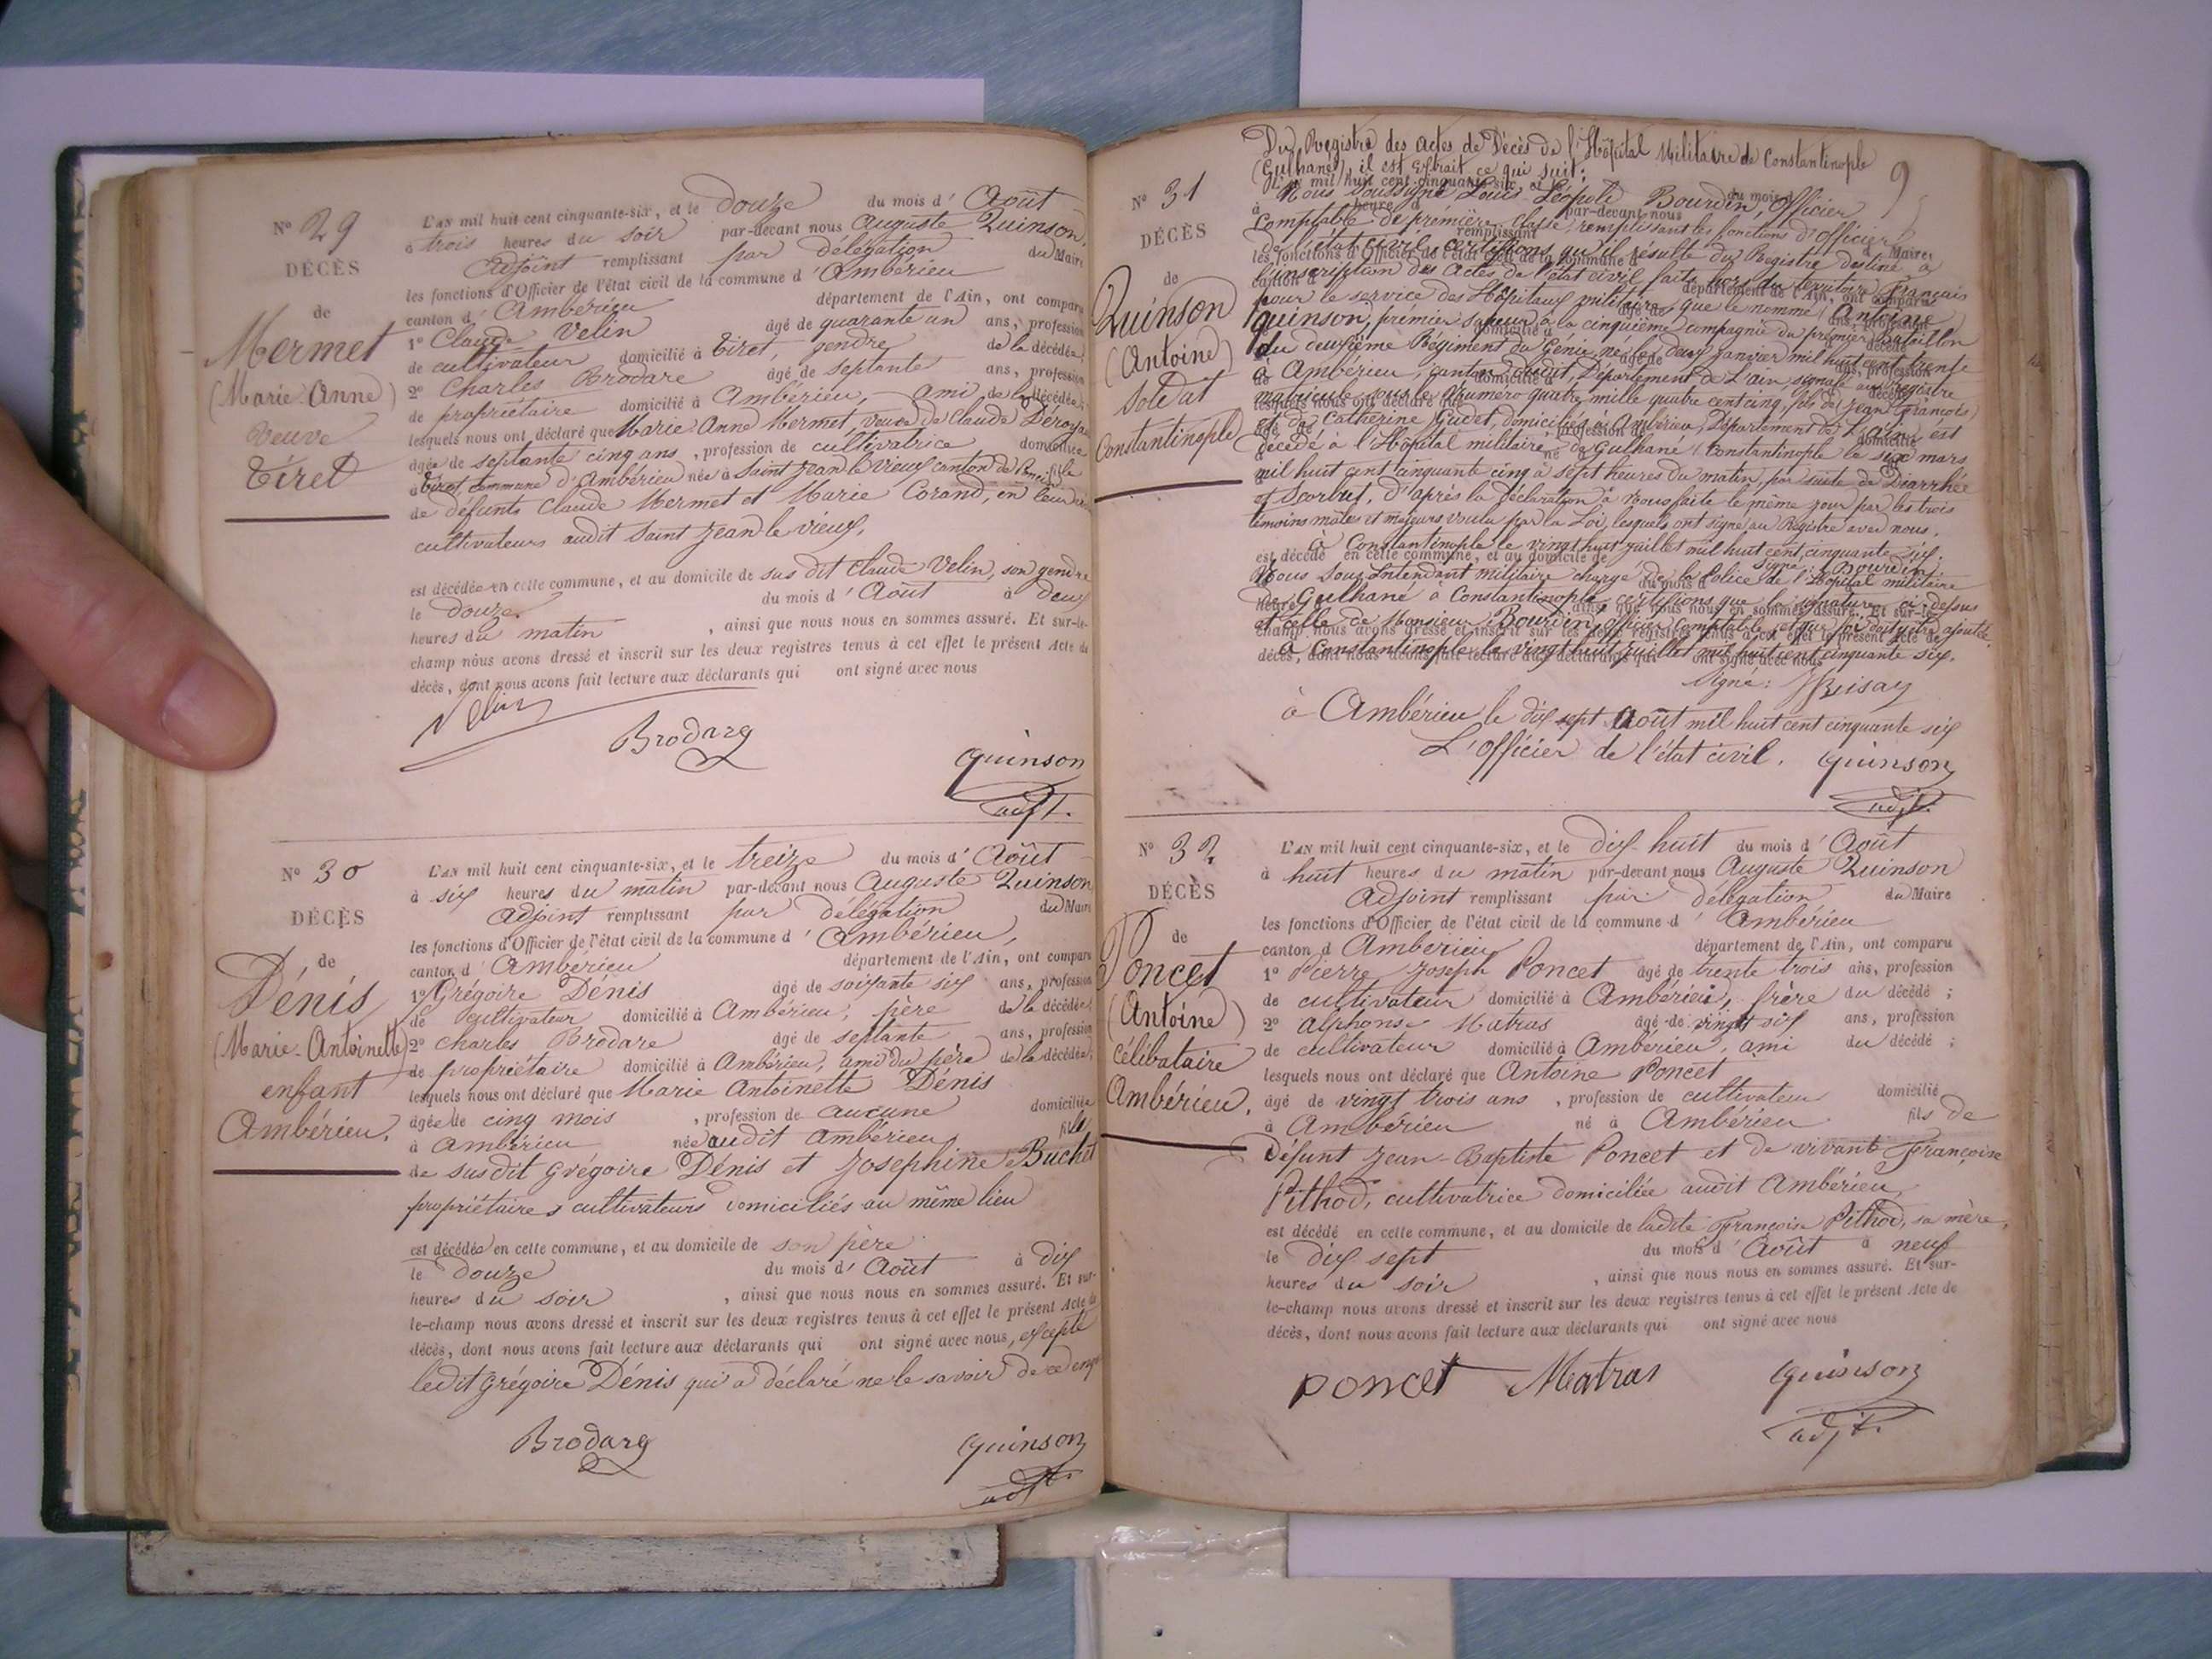 N° 29
DÉCÈS
de
Mermet
(Marie Anne)
veuve
Tiret
L'AN mil huit cent cinquante-six, et le douze du mois d' Août
à trois heures du soir par-devant nous Auguste Quinson,
Adjoint remplissant par délégation du Maire
les fonctions d'Officier de l'état civil de la commune d' Ambérieu
canton d' Ambérieu département de l'Ain, ont comparu
1° Claude Velin âgé de quarante un ans, profession
de cultivateur domicilié à Tiret, gendre de la décédée;
2° Charles Brodare âgé de septante ans, profession
de propriétaire domicilié à Ambérieu, ami de la décédée;
lesquels nous ont déclaré que Marie Anne Mermet, veuve de Claude
âgée de septante cinq ans, profession de cultivatrice domiciliée
à Tiret, commune d'Ambérieu née à Saint Jean le vieux canton de fille
de défunts Claude Mermet et Marie Corand, en leur
cultivateurs audit Saint Jean le vieux.
est décédée en cette commune, et au domicile de sus dit Claude Velin, son gendre
le douze du mois d' Août à deux
heures du matin, ainsi que nous nous en sommes assuré. Et sur-le-
champ nous avons dressé et inscrit sur les deux registres tenus à cet effet le présent Acte de
décès, dont nous avons fait lecture aux déclarants qui ont signé avec nous
Velin
Brodare
quinson
adjt.
N° 30
DÉCÈS
de
Dénis
(Marie-Antoinette)
enfant
Ambérieu.
L'AN mil huit cent cinquante-six, et le treize du mois d' Août
à six heures du matin par-devant nous Auguste Quinson
Adjoint remplissant par délégation du Maire
les fonctions d'Officier de l'état civil de la commune d' Ambérieu,
canton d' Ambérieu département de l'Ain, ont comparu
1° Grégoire Dénis âgé de soixante six ans, profession
de cultivateur domicilié à Ambérieu, père de la décédée;
2° Charles Brodare âgé de septante ans, profession
de propriétaire domicilié à Ambérieu, ami du père de la décédée;
lesquels nous ont déclaré que Marie Antoinette Dénis
âgée de cinq mois, profession de aucune domiciliée
à Ambérieu née audit Ambérieu fille
de susdit Grégoire Dénis et Josephine Buchet
propriétaires cultivateurs domiciliés au même lieu
est décédée en cette commune, et au domicile de son père
le douze du mois d' Août à dix
heures du soir, ainsi que nous nous en sommes assuré. Et sur-
le-champ nous avons dressé et inscrit sur les deux registres tenus à cet effet le présent Acte de
décès, dont nous avons fait lecture aux déclarants qui ont signé avec nous, excepté
ledit Grégoire Dénis qui a déclaré ne le savoir de ce enquis
Brodare
quinson
adjt.
9
N° 31
DÉCÈS
de
Quinson
(Antoine)
soldat
Constantinople
Du Registre des actes de Décès de l'Hôpital Militaire de Constantinople
(Gulhané), il est Extrait ce qui suit:
Nous Soussigné Louis Léopold Bourdin, Officier
Comptable de première classe, remplissant les fonctions d'officier
de l'état civil certifions qu'il résulte du Registre destiné à
l'inscription des Actes de l'état civil faits hors du territoire Français
pour le service des Hôpitaux militaires, que le nommé (Antoine)
Quinson, premier sapeur à la cinquième compagnie du premier Bataillon
du deuxième Régiment du Génie, né le deux janvier mil huit cent trente
à Ambérieu, canton dudit, Département de L'ain, signalé au registre
matricule sous le Numéro quatre mille quatre cent cinq, fils de (Jean François)
et de Catherine Gudet, domiciliés à Ambérieu, Département de l'Ain, est
décédé à l'Hôpital militaire de Gulhané (Constantinople le six mars
mil huit cent cinquante cinq à sept heures du matin, par suite de Diarrhée
et Scorbut. D'après la déclaration à Nous faite le même jour par les trois
témoins mâles et majeurs voulu par la Loi, lesquels ont signé au Registre avec nous.
à Constantinople le vingt huit juillet mil huit cent cinquante six.
Signé: L. Bourdin
Nous Sous Intendant militaire chargé de la Police de l'Hôpital militaire
de Gulhané à Constantinople, certifions que la signature ci-dessus
et celle de Monsieur Bourdin, officier Comptable, et que foi doit y être ajoutée.
à Constantinople le vingt huit juillet mil huit cent cinquante six.
Signé:
à Ambérieu le dix sept Août mil huit cent cinquante six
L'Officier de l'état civil. quinson
adjt.
N° 32
DÉCÈS
de
Poncet
(Antoine)
célibataire
Ambérieu.
L'AN mil huit cent cinquante-six, et le dix-huit du mois d' Août
à huit heures du matin par-devant nous Auguste Quinson
Adjoint remplissant par délégation du Maire
les fonctions d'Officier de l'état civil de la commune d' Ambérieu
canton d Ambérieu département de l'Ain, ont comparu
1° Pierre Joseph Poncet âgé de trente trois ans, profession
de cultivateur domicilié à Ambérieu, frère du décédé ;
2° alphonse Matras âgé de vingt six ans, profession
de cultivateur domicilié à Ambérieu, ami du décédé ;
lesquels nous ont déclaré que Antoine Poncet
âgé de vingt trois ans, profession de cultivateur domicilié
à Ambérieu né à Ambérieu fils de
Défunt Jean-Baptiste Poncet et de vivante Françoise
Pithod, cultivatrice domiciliée audit Ambérieu,
est décédé en cette commune, et au domicile de ladite Françoise Pithod, sa mère,
le dix sept du mois d' Août à neuf
heures du soir, ainsi que nous nous en sommes assuré. Et sur-
le-champ nous avons dressé et inscrit sur les deux registres tenus à cet effet le présent Acte de
décès, dont nous avons fait lecture aux déclarants qui ont signé avec nous
poncet Matras quinson
adjt.